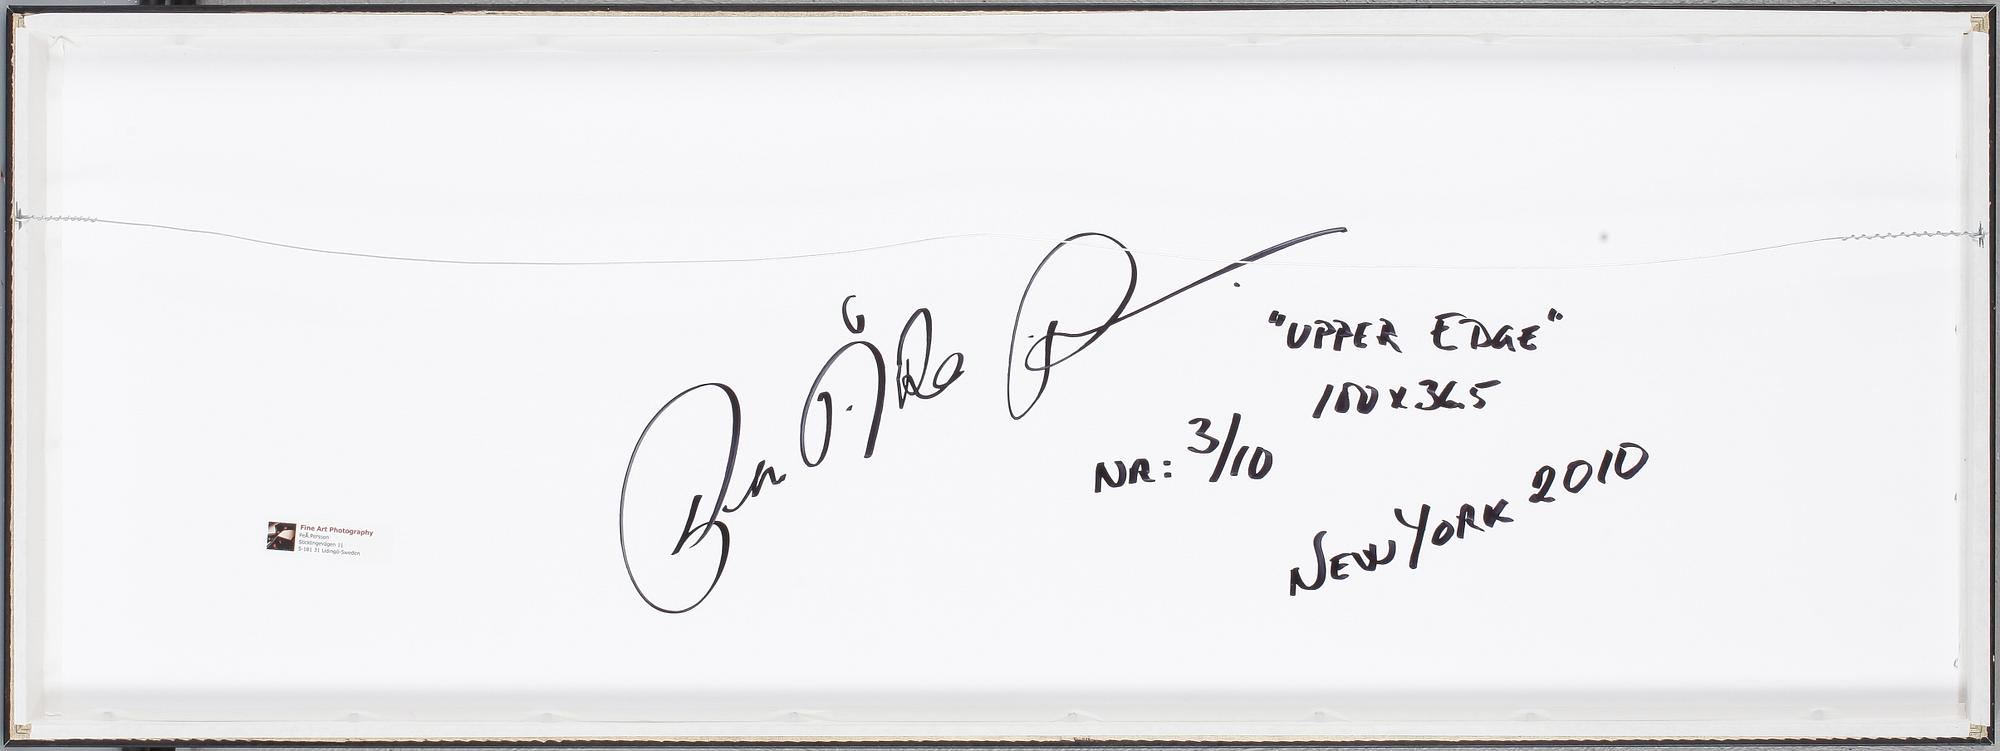 "UPPER EDGE"
100 x 36.5
NR: 3/10
NEW YORK 2010
Fine Art Photography
PeÅ Persson
Stockbygevägen 11
S-181 31 Lidingö-Sweden